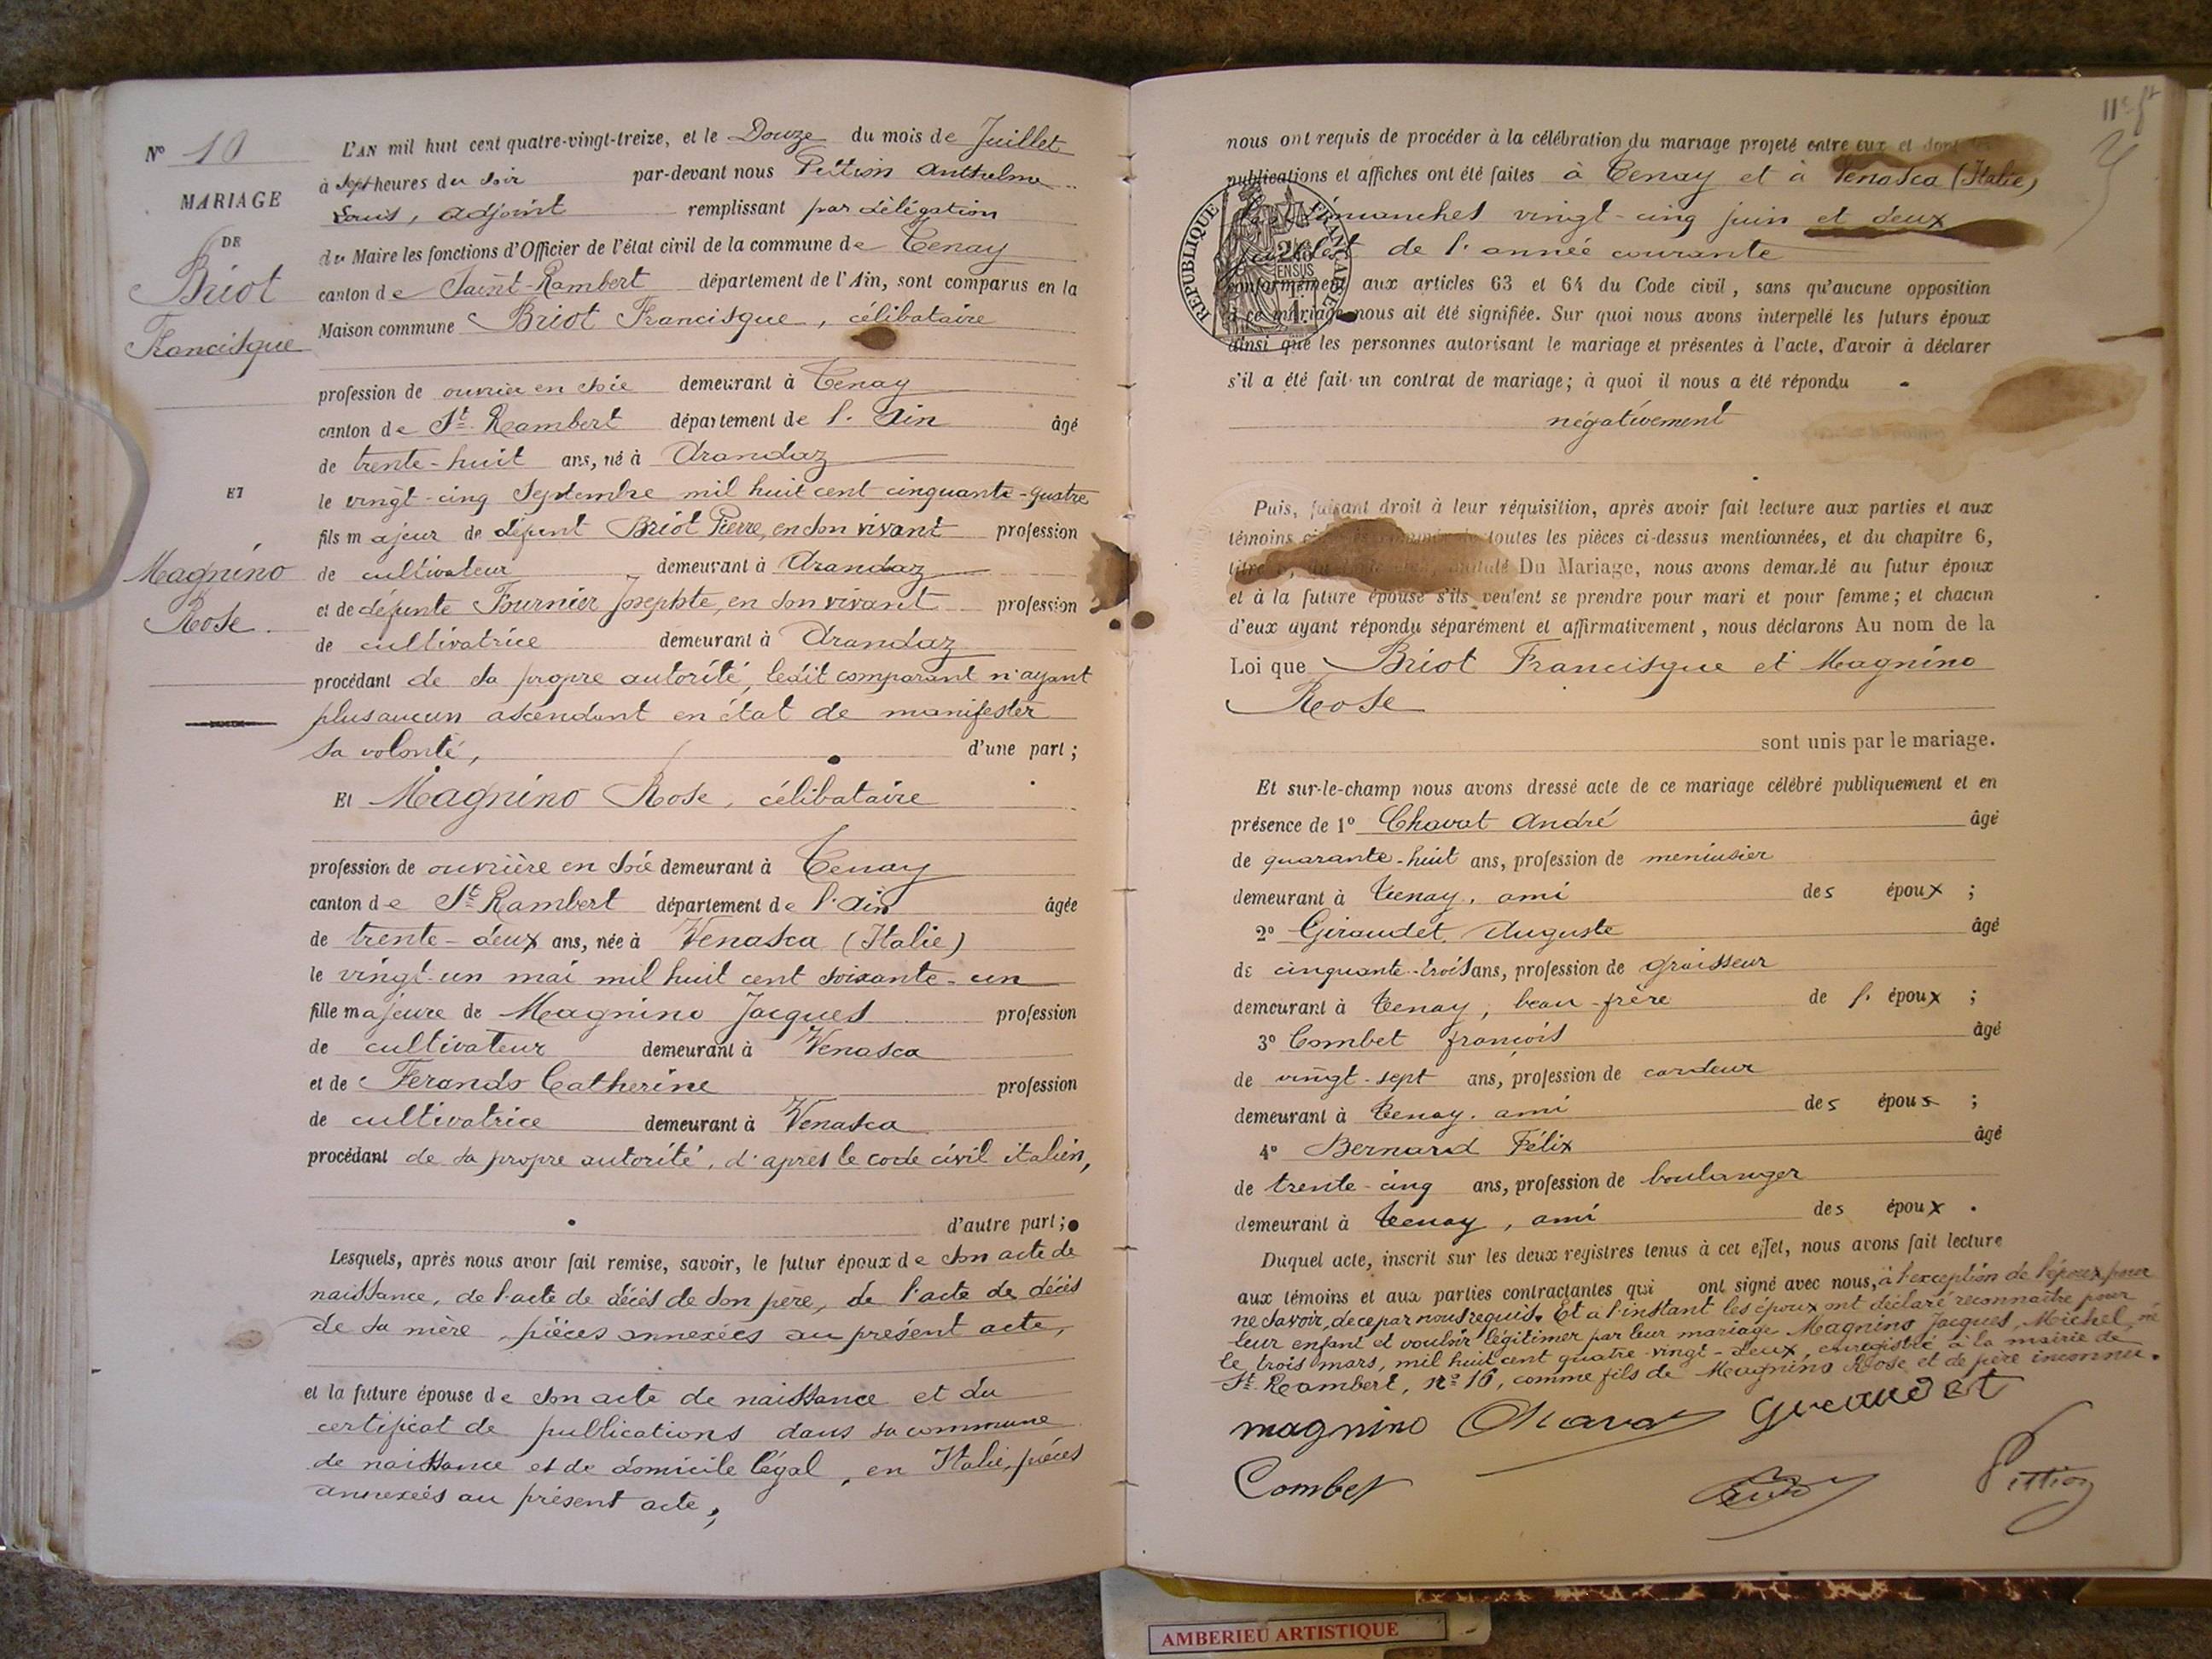 N° 10
MARIAGE
DE
Briot
Francisque
ET
Magnino
Rose.
L'AN mil huit cent quatre-vingt-treize, et le Douze du mois de Juillet
à sept heures du soir par-devant nous Pittion Anthelme
Louis, adjoint remplissant par délégation
du Maire les fonctions d'Officier de l'état civil de la commune de Tenay
canton de Saint-Rambert département de l'Ain, sont comparus en la
Maison commune Briot Francisque, célibataire
profession de ouvrier en soie demeurant à Tenay
canton de St. Rambert département de l'Ain âgé
de trente-huit ans, né à Arandaz
le vingt-cinq Septembre mil huit cent cinquante-quatre
fils majeur de défunt Briot Pierre, en son vivant profession
de cultivateur demeurant à Arandaz
et de défunte Fournier Josephte, en son vivant profession
de cultivatrice demeurant à Arandaz
procédant de sa propre autorité, ledit comparant n'ayant
plus aucun ascendant en état de manifester
sa volonté, d'une part;
Et Magnino Rose, célibataire
profession de ouvrière en soie demeurant à Tenay
canton de St. Rambert département de l'Ain âgée
de trente-deux ans, née à Venasca (Italie)
le vingt-un mai mil huit cent soixante-un
fille majeure de Magnino Jacques profession
de cultivateur demeurant à Venasca
et de Ferando Catherine profession
de cultivatrice demeurant à Venasca
procédant de sa propre autorité, d'après le code civil italien,
d'autre part;
Lesquels, après nous avoir fait remise, savoir, le futur époux de son acte de
naissance, de l'acte de décès de son père, de l'acte de décès
de sa mère, pièces annexées au présent acte,
et la future épouse de son acte de naissance et du
certificat de publications dans sa commune
de naissance et de domicile légal, en Italie, pièces
annexées au présent acte,
nous ont requis de procéder à la célébration du mariage projeté entre eux et dont les
publications et affiches ont été faites à Tenay et à Venasca (Italie)
les dimanches vingt-cinq juin et deux
juillet de l'année courante
REPUBLIQUE FRANÇAISE
conformément aux articles 63 et 64 du Code civil, sans qu'aucune opposition
à ce mariage nous ait été signifiée. Sur quoi nous avons interpellé les futurs époux
ainsi que les personnes autorisant le mariage et présentes à l'acte, d'avoir à déclarer
s'il a été fait un contrat de mariage; à quoi il nous a été répondu
négativement
Puis, faisant droit à leur réquisition, après avoir fait lecture aux parties et aux
témoins toutes les pièces ci-dessus mentionnées, et du chapitre 6,
titre intitulé Du Mariage, nous avons demandé au futur époux
et à la future épouse s'ils veulent se prendre pour mari et pour femme; et chacun
d'eux ayant répondu séparément et affirmativement, nous déclarons Au nom de la
Loi que Briot Francisque et Magnino
Rose
sont unis par le mariage.
Et sur-le-champ nous avons dressé acte de ce mariage célébré publiquement et en
présence de 1° Chavat André âgé
de quarante-huit ans, profession de menuisier
demeurant à Tenay, ami des époux;
2° Giraudet Auguste âgé
de cinquante-trois ans, profession de graisseur
demeurant à Tenay, beau-frère de l'époux;
3° Combet françois âgé
de vingt-sept ans, profession de cardeur
demeurant à Tenay, ami des époux;
4° Bernard Félix âgé
de trente-cinq ans, profession de boulanger
demeurant à Tenay, ami des époux.
Duquel acte, inscrit sur les deux registres tenus à cet effet, nous avons fait lecture
aux témoins et aux parties contractantes qui ont signé avec nous, à l'exception de l'époux pour
ne savoir, de ce par nous requis. Et à l'instant les époux ont déclaré reconnaître pour
leur enfant et vouloir légitimer par leur mariage Magnino Jacques, Michel, né
le trois mars, mil huit cent quatre-vingt-deux, enregistré à la mairie de
St. Rambert, N° 16, comme fils de Magnino Rose et de père inconnu.
magnino Chavat Giraudet
Combet Pittion
AMBERIEU ARTISTIQUE